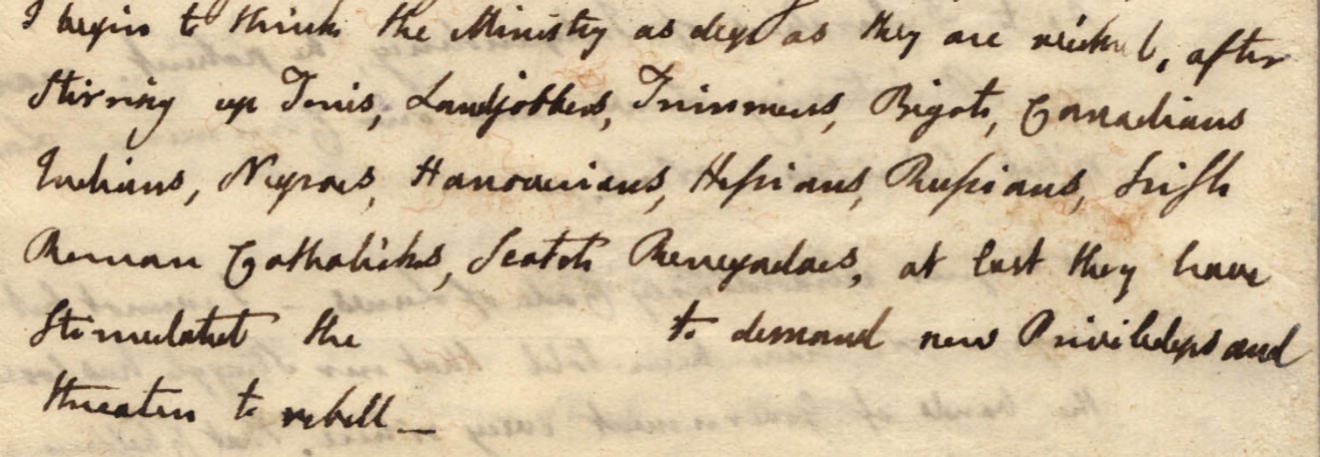 I begin to think the Ministry as deep as they are wicked, after
Stirring up Tories, Landjobbers, Trimmers, Bigots, Canadians
Indians, Negroes, Hanoverians, Hessians, Russians, Irish
Roman Catholicks, Scotch Renegadoes, at last they have
Stimulated the to demand new Priviledges and
threaten to rebell —